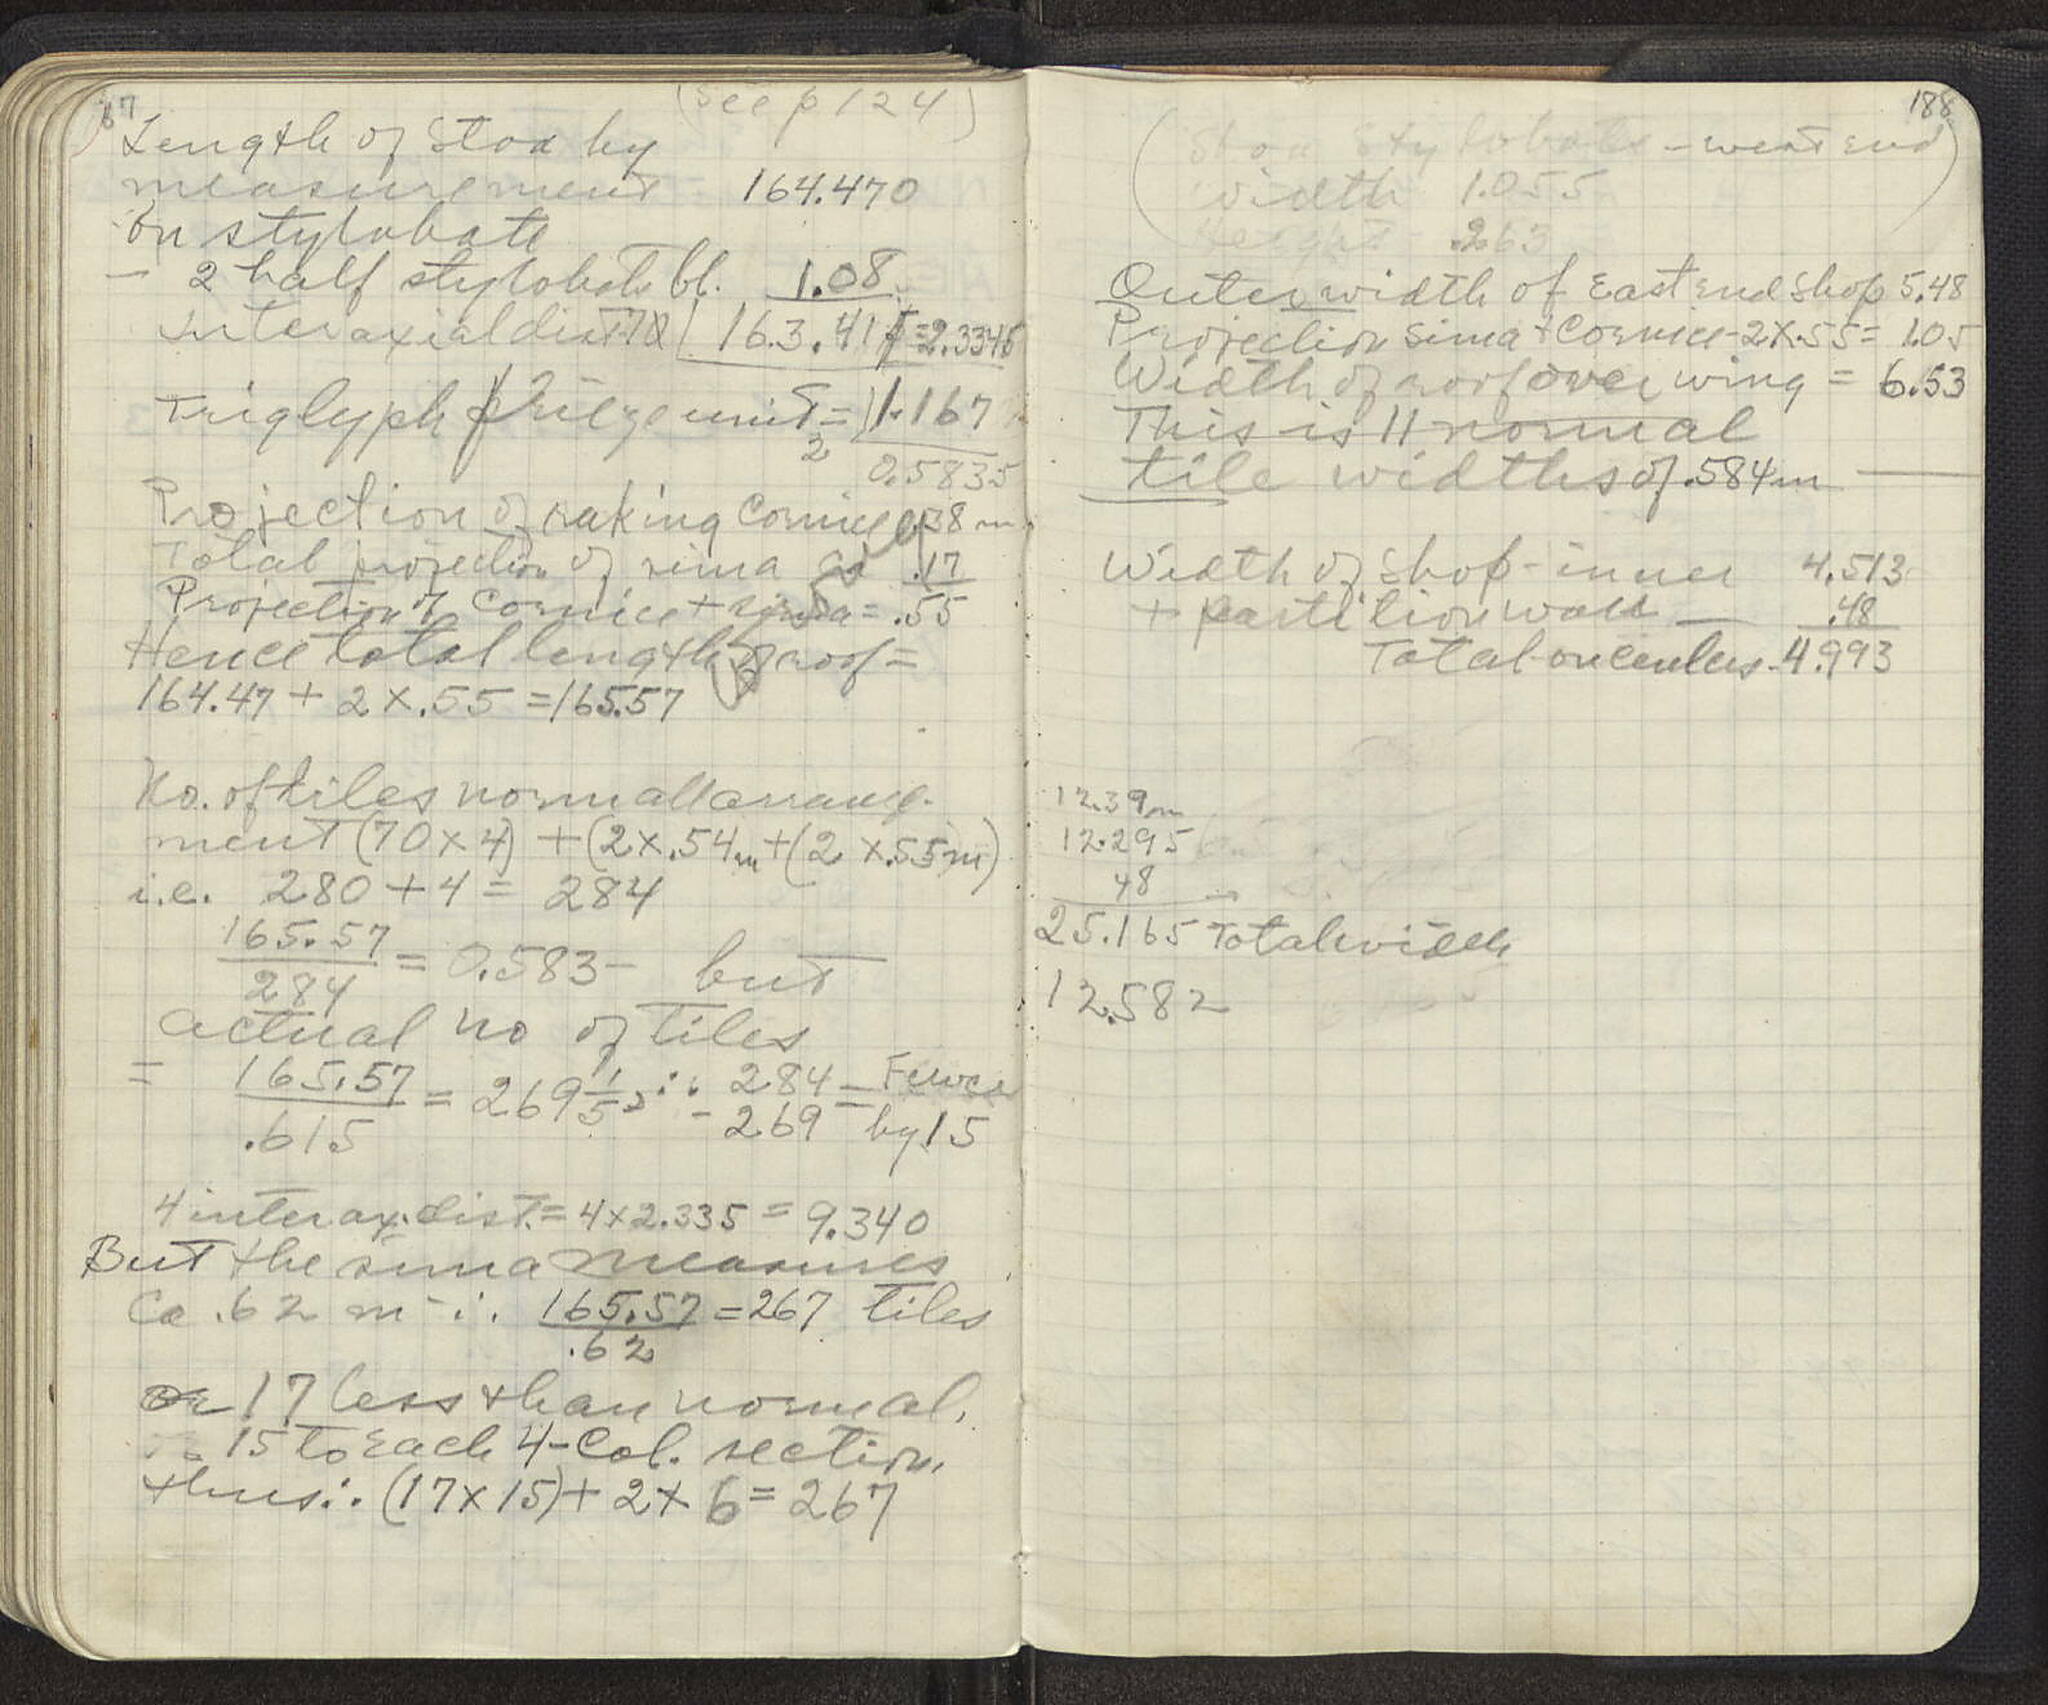 (See p 124)
Length of Stoa by
measurement 164.470
on stylobate
- 2 half stylobate bl. 1.08
interaxial dist. 70 | 163.41 = 2.3345
Triglyph frieze unit = 1.167
2 0.5835
Projection of raking cornice .38 m
Total projection of sima .17
Projection of cornice + sima = .55
Hence total length of roof =
164.47 + 2 x .55 = 165.57
No. of tiles normal arrange-
ment (70 x 4) + (2 x .54m + (2 x .55m)
i.e. 280 + 4 = 284
165.57/284 = 0.583 - but
actual no of tiles
= 165.57/.615 = 269 1/5 ∴ 284 - 269 = Fewer by 15
4 interax. dist. = 4 x 2.335 = 9.340
But the sima measures
Ca .62 m - ∴ 165.57/.62 = 267 tiles
or 17 less than normal.
15 to each 4-Col. section,
thus ∴ (17 x 15) + 2 x 6 = 267
188
(Stoa Stylobate - west end
width 1.055
Height .263)
Outer width of East end shop 5.48
Projection Sima + Cornice - 2 x .55 = 1.05
Width of roof over wing = 6.53
This is 11 normal
tile widths of .584m
Width of shop - inner 4.513
+ partition wall - .48
Total on centers - 4.993
12.39m
12.295
48
25.165 Total width
12.582